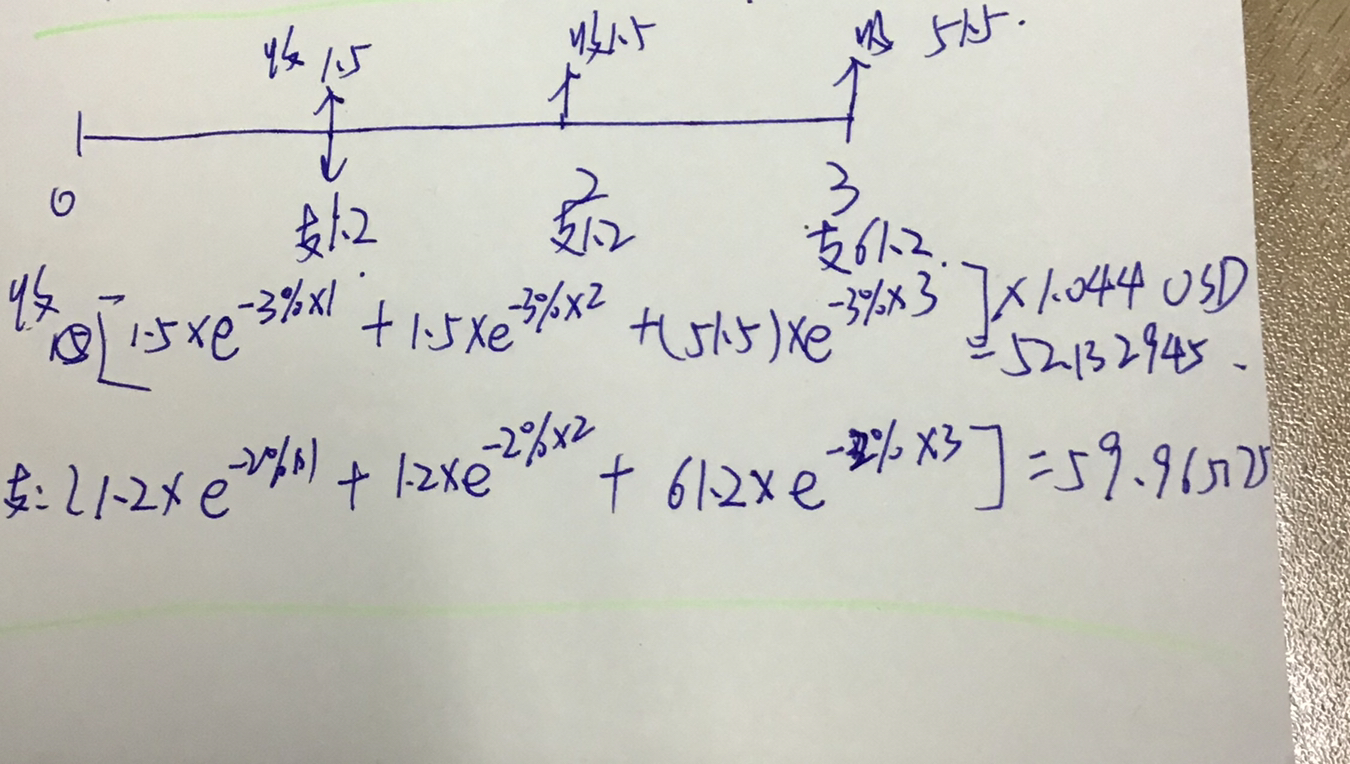 收 1.5 收1.5 收 51.5.
0 2 3
支1.2 支1.2 支61.2.
收 [1.5×e^{-3%×1} + 1.5×e^{-3%×2} +(51.5)×e^{-3%×3}]×1.044 USD
=52.132945.
支:[1.2×e^{-2%×1} + 1.2×e^{-2%×2} + 61.2×e^{-2%×3}]=59.965725